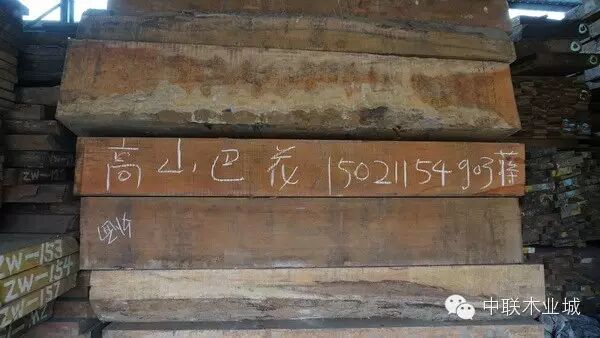 高山巴花 15021154903蒋
ZW-153
ZW-154
ZW-157
中联木业城